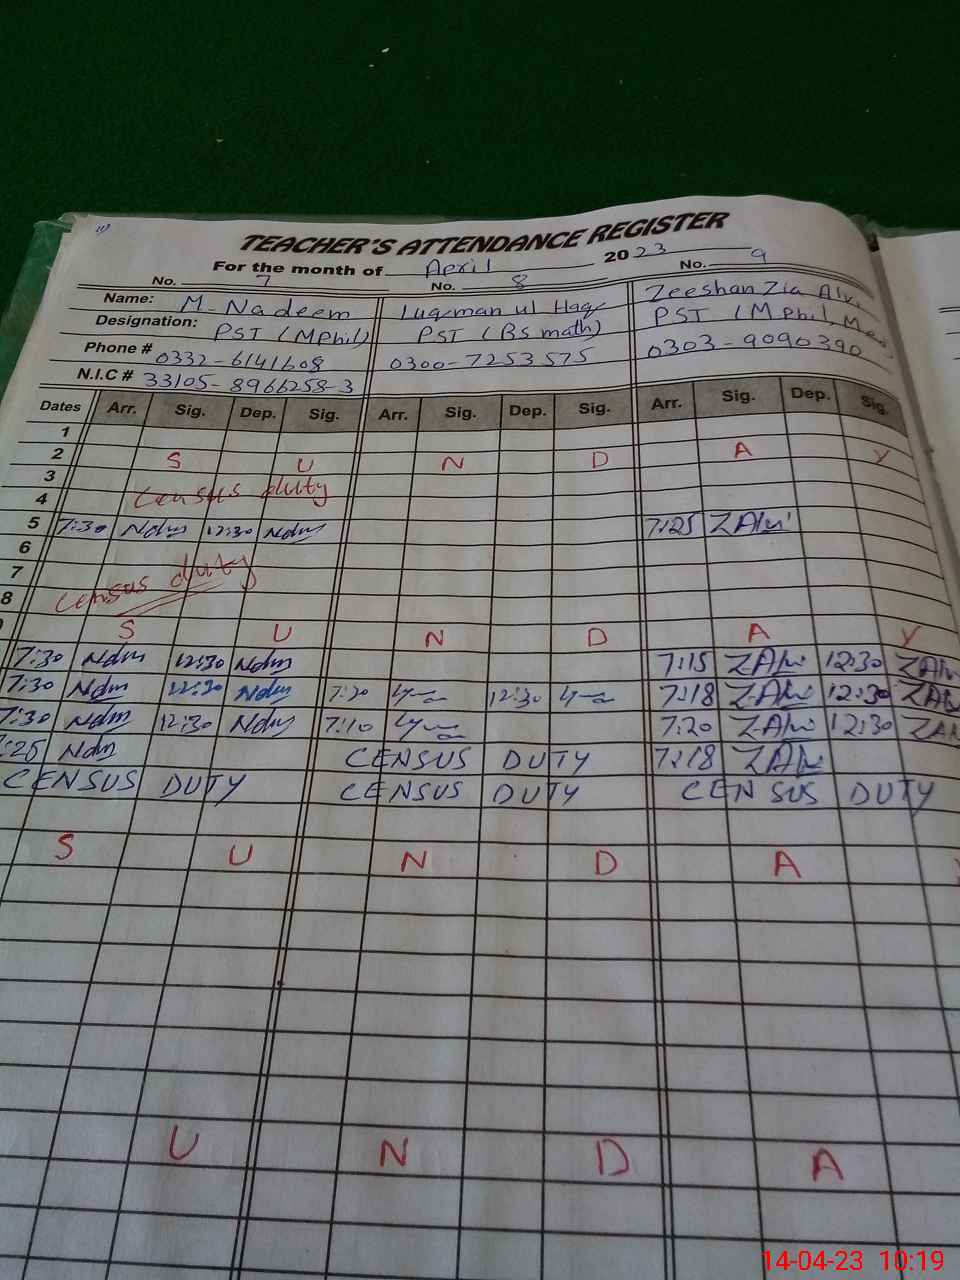 TEACHER'S ATTENDANCE REGISTER
For the month of April 2023
No. 7 No. 8 No. 9
Name: M. Nadeem Luqman ul Haq Zeeshan Zia Alvi
Designation: PST (MPhil) PST (BS math) PST (MPhil,
Phone # 0332-6141608 0300-7253575 0303-9090390
N.I.C # 33105-8966258-3
Dates Arr. Sig. Dep. Sig. Arr. Sig. Dep. Sig. Arr. Sig. Dep. Sig.
1
2 S U N D A Y
3
4 Census duty
5 7:30 Ndm 12:30 Ndm 7:25 ZAlvi
6
7 Census duty
8
S U N D A Y
7:30 Ndm 12:30 Ndm 7:15 ZAlvi 12:30 ZAlvi
7:30 Ndm 12:30 Ndm 7:20 12:30 7:18 ZAlvi 12:30 ZAlvi
7:30 Ndm 12:30 Ndm 7:10 7:20 ZAlvi 12:30 ZAl
7:25 Ndm CENSUS DUTY 7:18 ZAlvi
CENSUS DUTY CENSUS DUTY CENSUS DUTY
S U N D A
U N D A
14-04-23 10:19